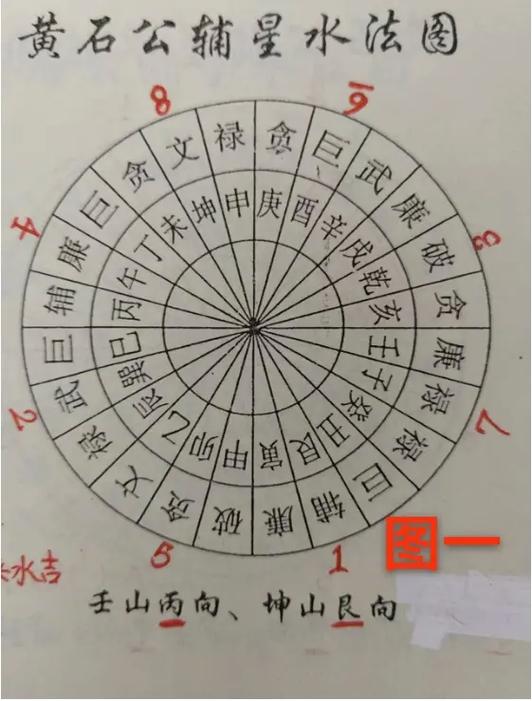 黄石公辅星水法图
8
贪巨武廉破贪廉禄禄巨辅廉破贪文禄武巨辅廉巨贪文禄
庚酉辛戌乾亥壬子癸丑艮寅甲卯乙辰巽巳丙午丁未坤申
4
2
7
5
1
图一
水吉
壬山丙向、坤山艮向